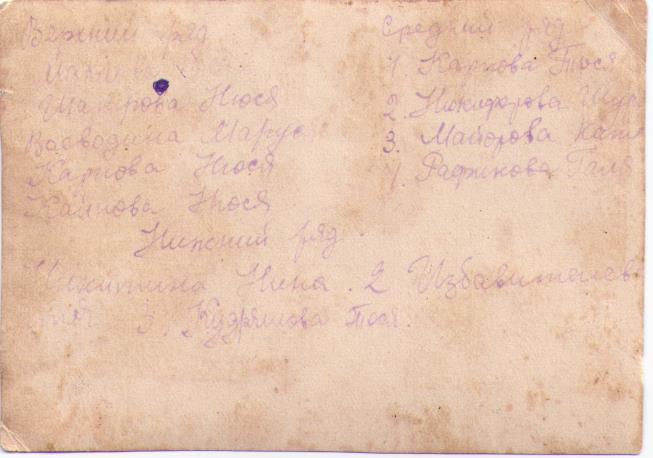 Верхний ряд
Шатрова Нюся
Воеводина Маруся
Карпова Нюся
Каипова Нюся
Средний ряд
1. Карпова Тося
2. Никифорова Шур
3. Майорова Катя
4. Рафикова Галя
Нижний ряд
Никитина Нина. 2 Избавителев
3. Кудряшова Тося.